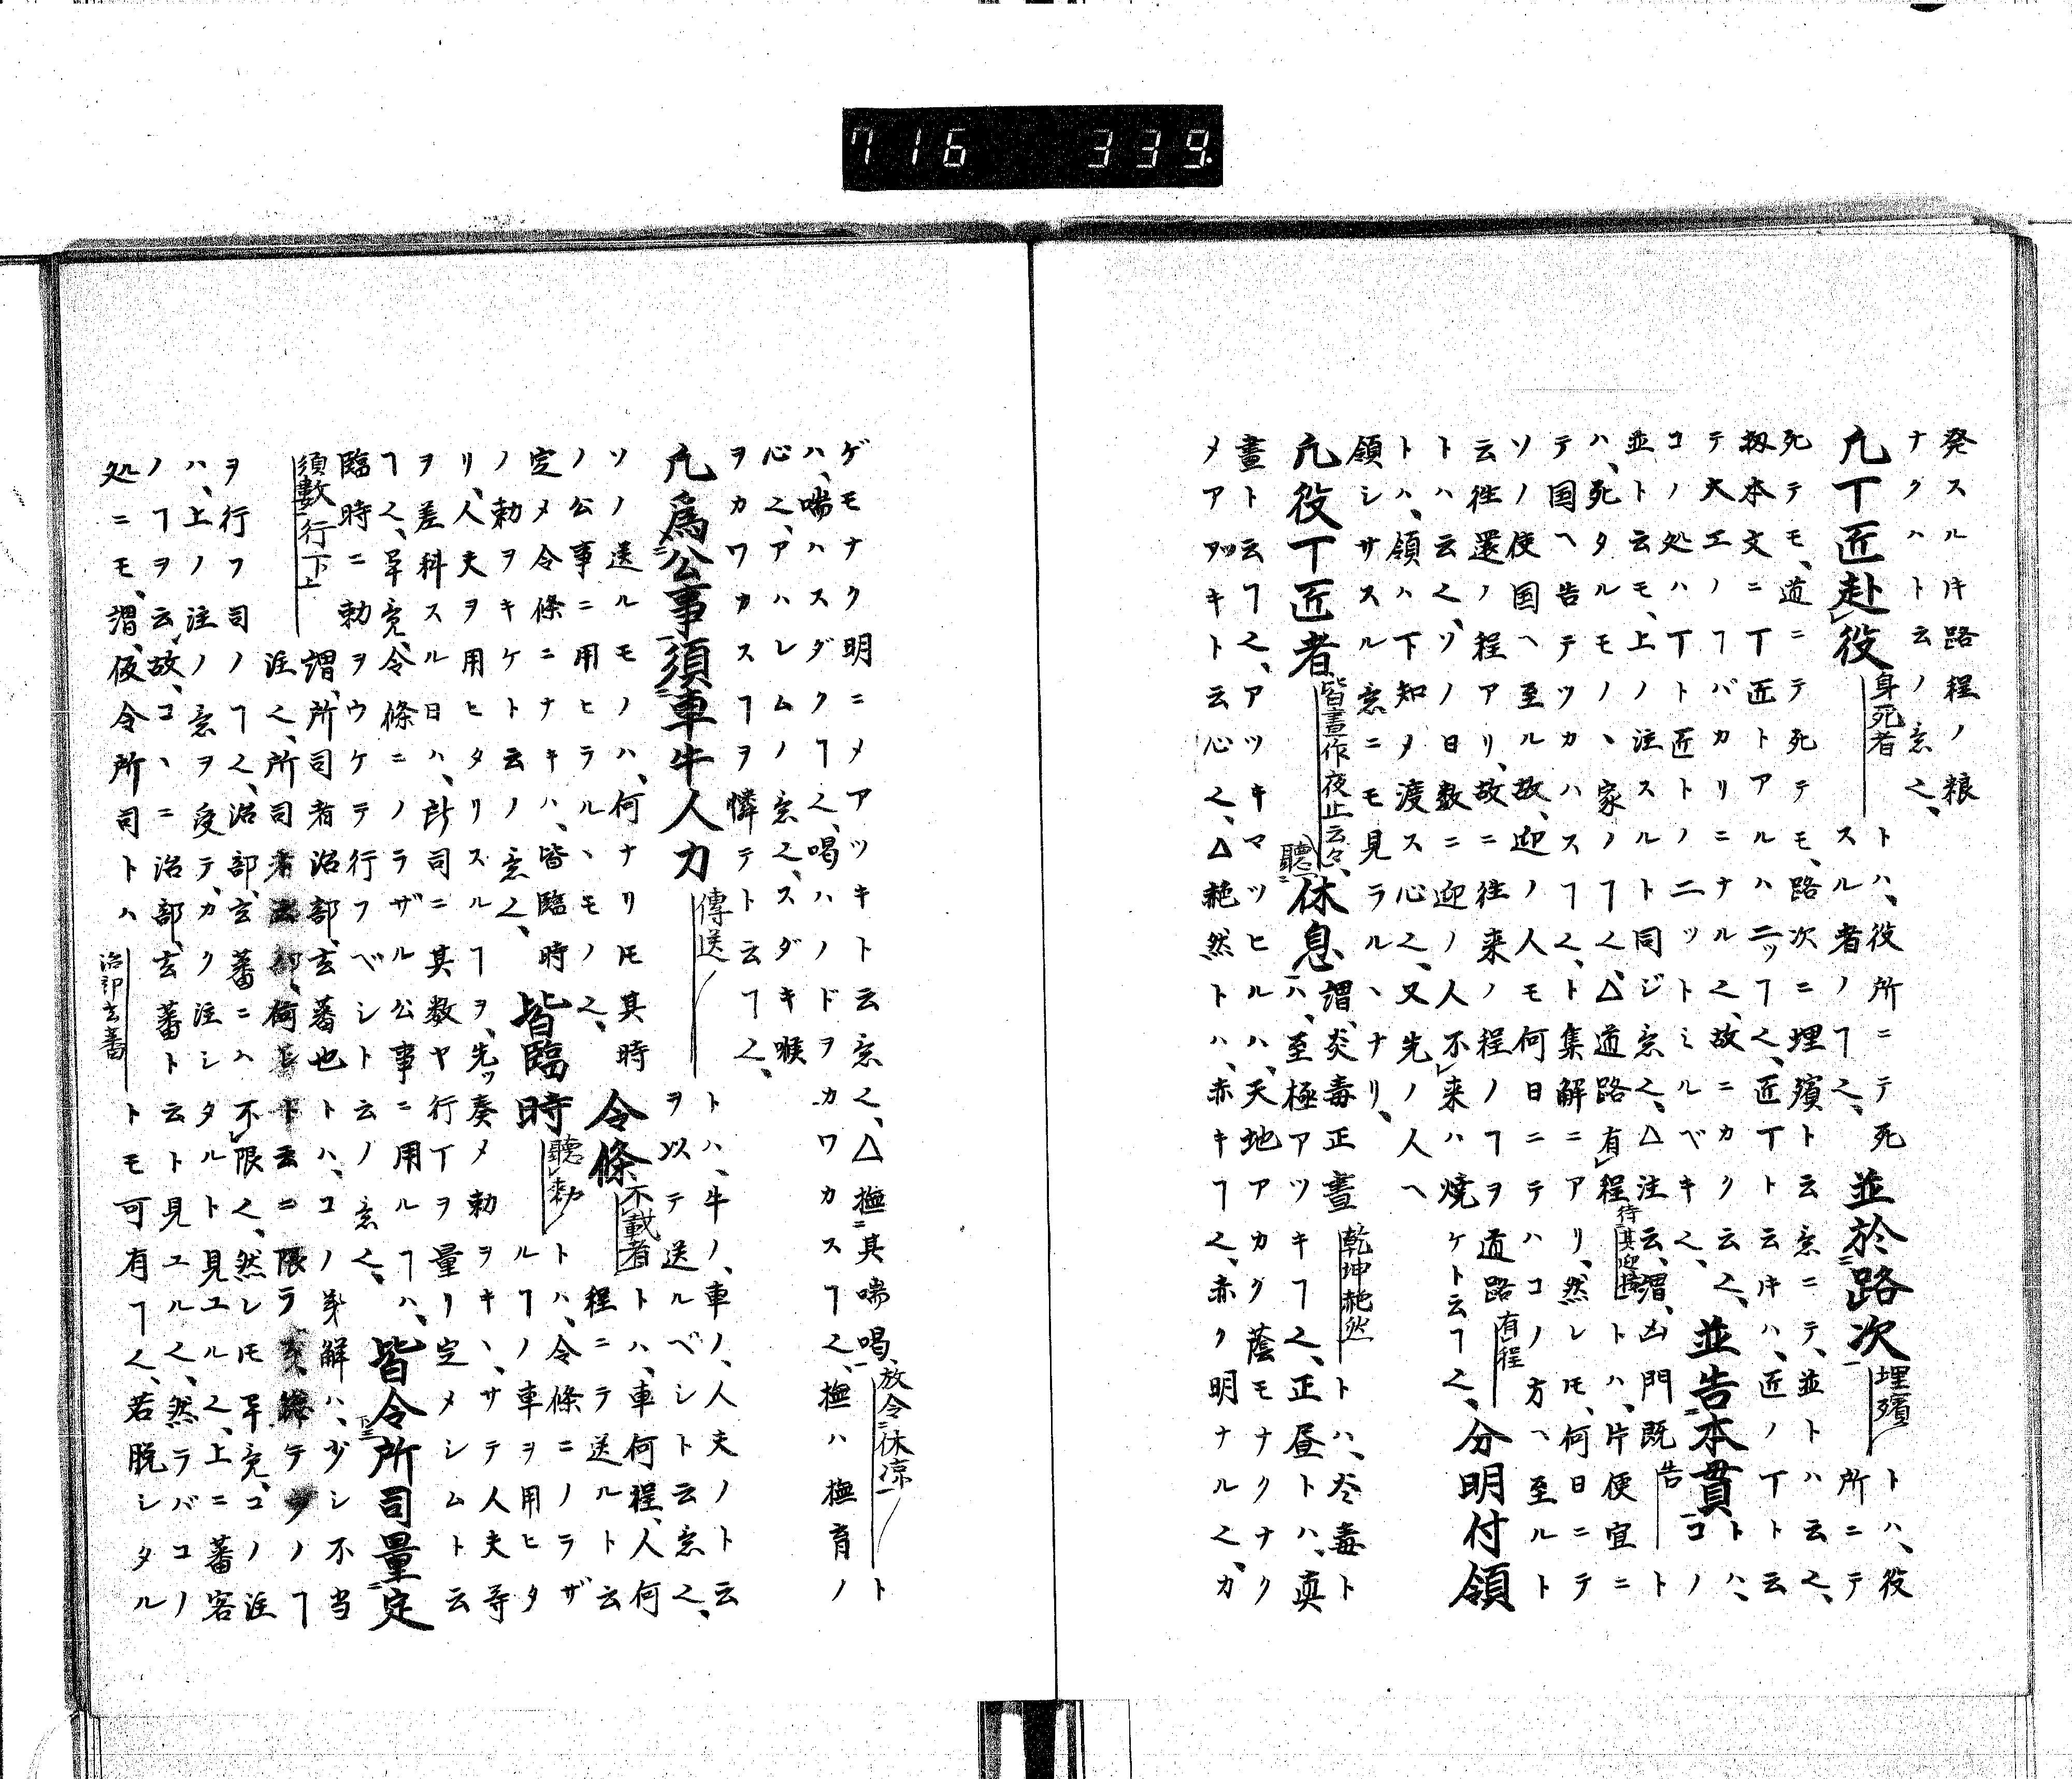 716 339.
発スル片路程ノ粮
ナクハト云ノ意〱、
凡丁匠赴役身死者トハ、役所ニテ死
スル者ノヿ〱、並於路次埋殯トハ、役所ニテ
死テモ、道ニテ死テモ、路次ニ埋殯ト云意ニテ、並トハ云〱、
扨本文ニ丁匠トアルハ二ッヿ〱、匠丁ト云片ハ、匠ノ丁ト云
テ大工ノヿバカリニナル〱、故ニカク云〱、並告本貫トハ、
コノ処ハ丁ト匠トノ二ツトミルベキ〱、コノ
並ト云モ、上ノ注スルト同ジ意〱、△注云、謂、凶門既告ト
ハ、死タルモノヽ家ノヿ〱、△道路有程待其迎接トハ、片便宜ニ
テ国ヘ告テツカハスヿ〱、ト集解ニアリ、然レ𪜈、何日ニテ
ソノ使国ヘ至ル故、迎ノ人モ何日ニテハコノ方ヘ至ルト
云往還ノ程アリ、故ニ往来ノ程ノヿヲ道路有程
トハ云〱、ソノ日数ニ迎ノ人不来ハ焼ケト云ヿ〱、分明付領
トハ、領ハ下知メ渡ス心〱、又先ノ人ヘ
領シサスル意ニモ見ラルヽナリ、
凡役丁匠者皆晝作夜止云々、聽休息謂、炎毒正晝乾坤赩然トハ、炎毒ト
ハ、至極アツキヿ〱、正昼トハ、真
晝ト云ヿ〱、アツキマツヒルハ、天地アカグ蔭モナクナク
メアアツキト云心〱、△赩然トハ、赤キヿ〱、赤ク明ナル〱、カ
ゲモナク明ニメアツキト云意〱、△撫其喘喝、放令休涼ト
ハ、喘ハスダクヿ〱、喝ハノドヲカワカスヿ〱、撫ハ撫育ノ
心〱、アハレムノ意〱、スダキ喉
ヲカワカスヿヲ憐テト云ヿ〱、
凡為公事須車牛人力傳送トハ、牛ノ、車ノ、人夫ノト云
ヲ以テ送ルベシト云意〱、
ソノ送ルモノハ、何ナリ𪜈其時
ノ公事ニ用ヒラルヽモノ〱、令條不載者トハ、車何程、人何
程ニテ送ルト云
定メ令條ニナキハ、皆臨時皆臨時聽勅トハ、令條ニノラザ
ルヿノ車ヲ用ヒタ
ノ勅ヲキケト云ノ意〱、
リ、人夫ヲ用ヒタリスルヿヲ、先ッ奏メ勅ヲキヽ、サテ人夫等
ヲ差科スル日ハ、所司ニ其数ヤ行丁ヲ量リ定メシムト云
ヿ〱、畢竟、令條ニノラザル公事ニ用ルヿハ、皆令所司量定
臨時ニ勅ヲウケテ行フベシト云ノ意〱、
須數行下上謂、所司者治部、玄蕃也トハ、コノ弟解ハ、少シ不当
注〱、所司
ヲ行フ司ノヿ〱、治部、玄蕃ニハ不限〱、然レ𪜈畢竟、コノ注
ハ、上ノ注ノ意ヲ受テ、カク注シタルト見ユル〱、上ニ蕃客
ノヿヲ云故、コヽニ治部、玄蕃ト云ト見ユル〱、然ラバコノ
処ニモ、謂、仮令所司トハ治部玄蕃トモ可有ヿ〱、若脱シタル